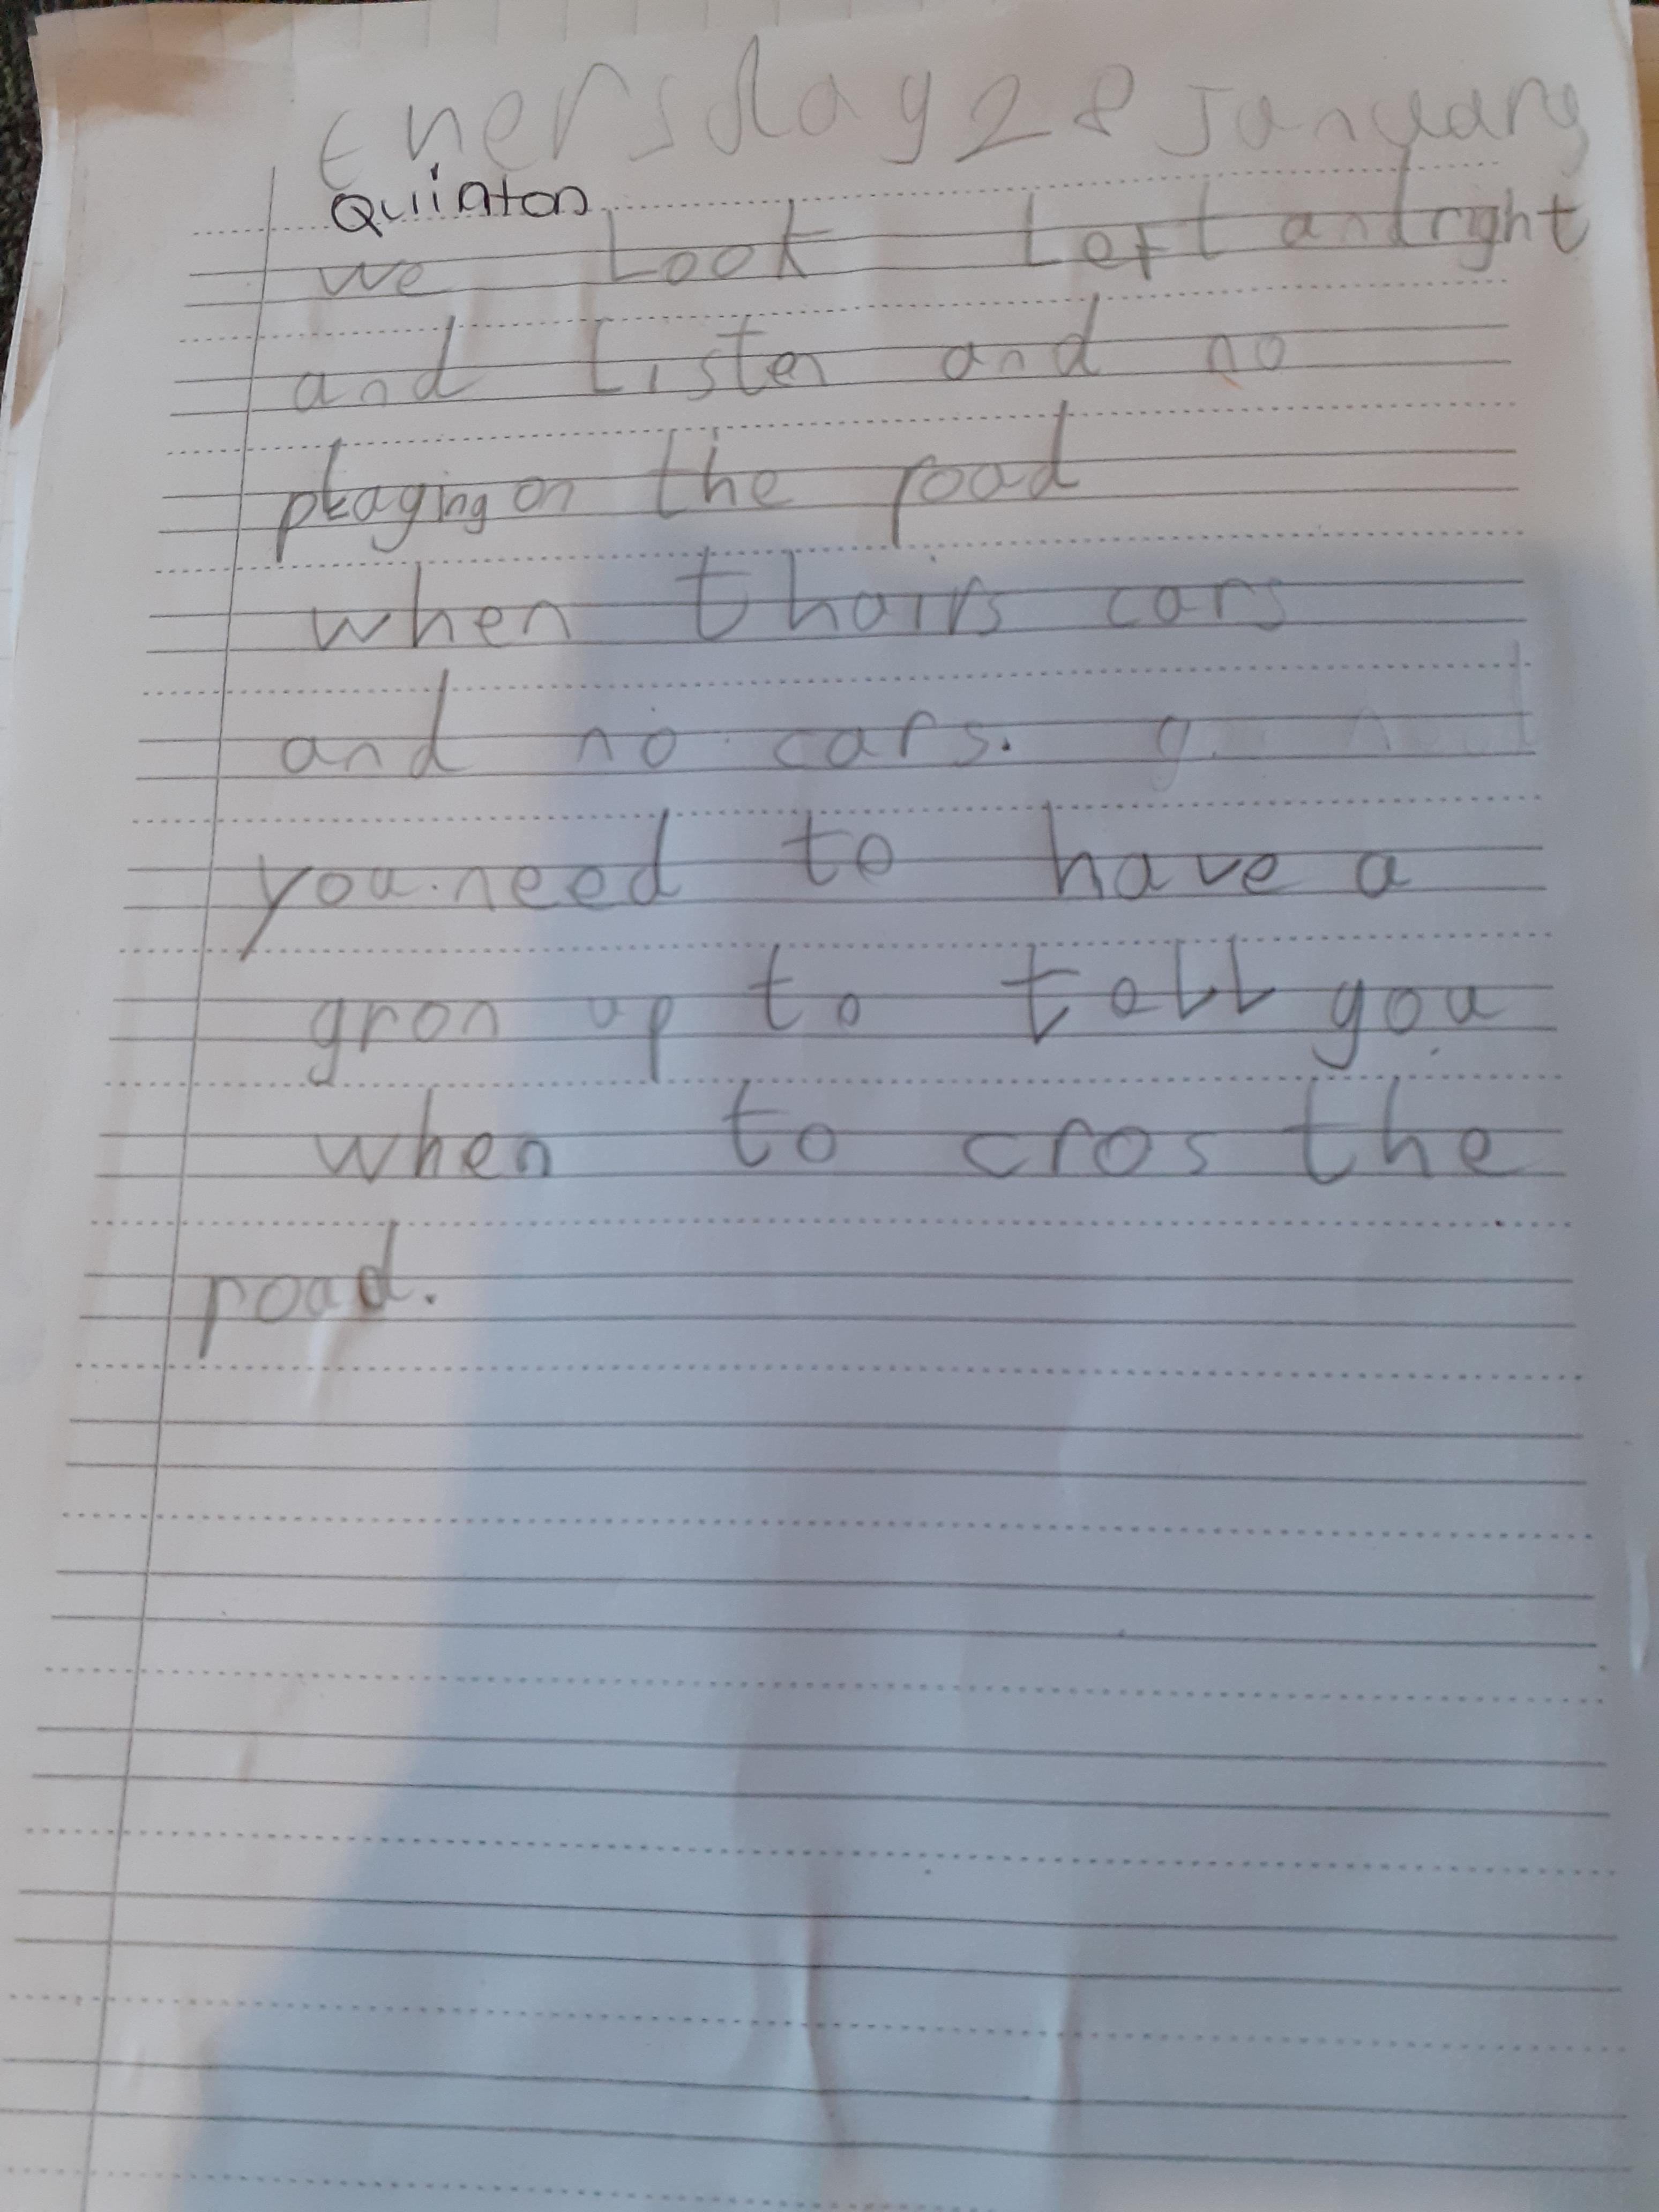 thersday 28 January
Quinton
we look left and right
and listen and no
playing on the road
when thairs cars
and no cars.
you need to have a
gron up to tell you
when to cros the
road.